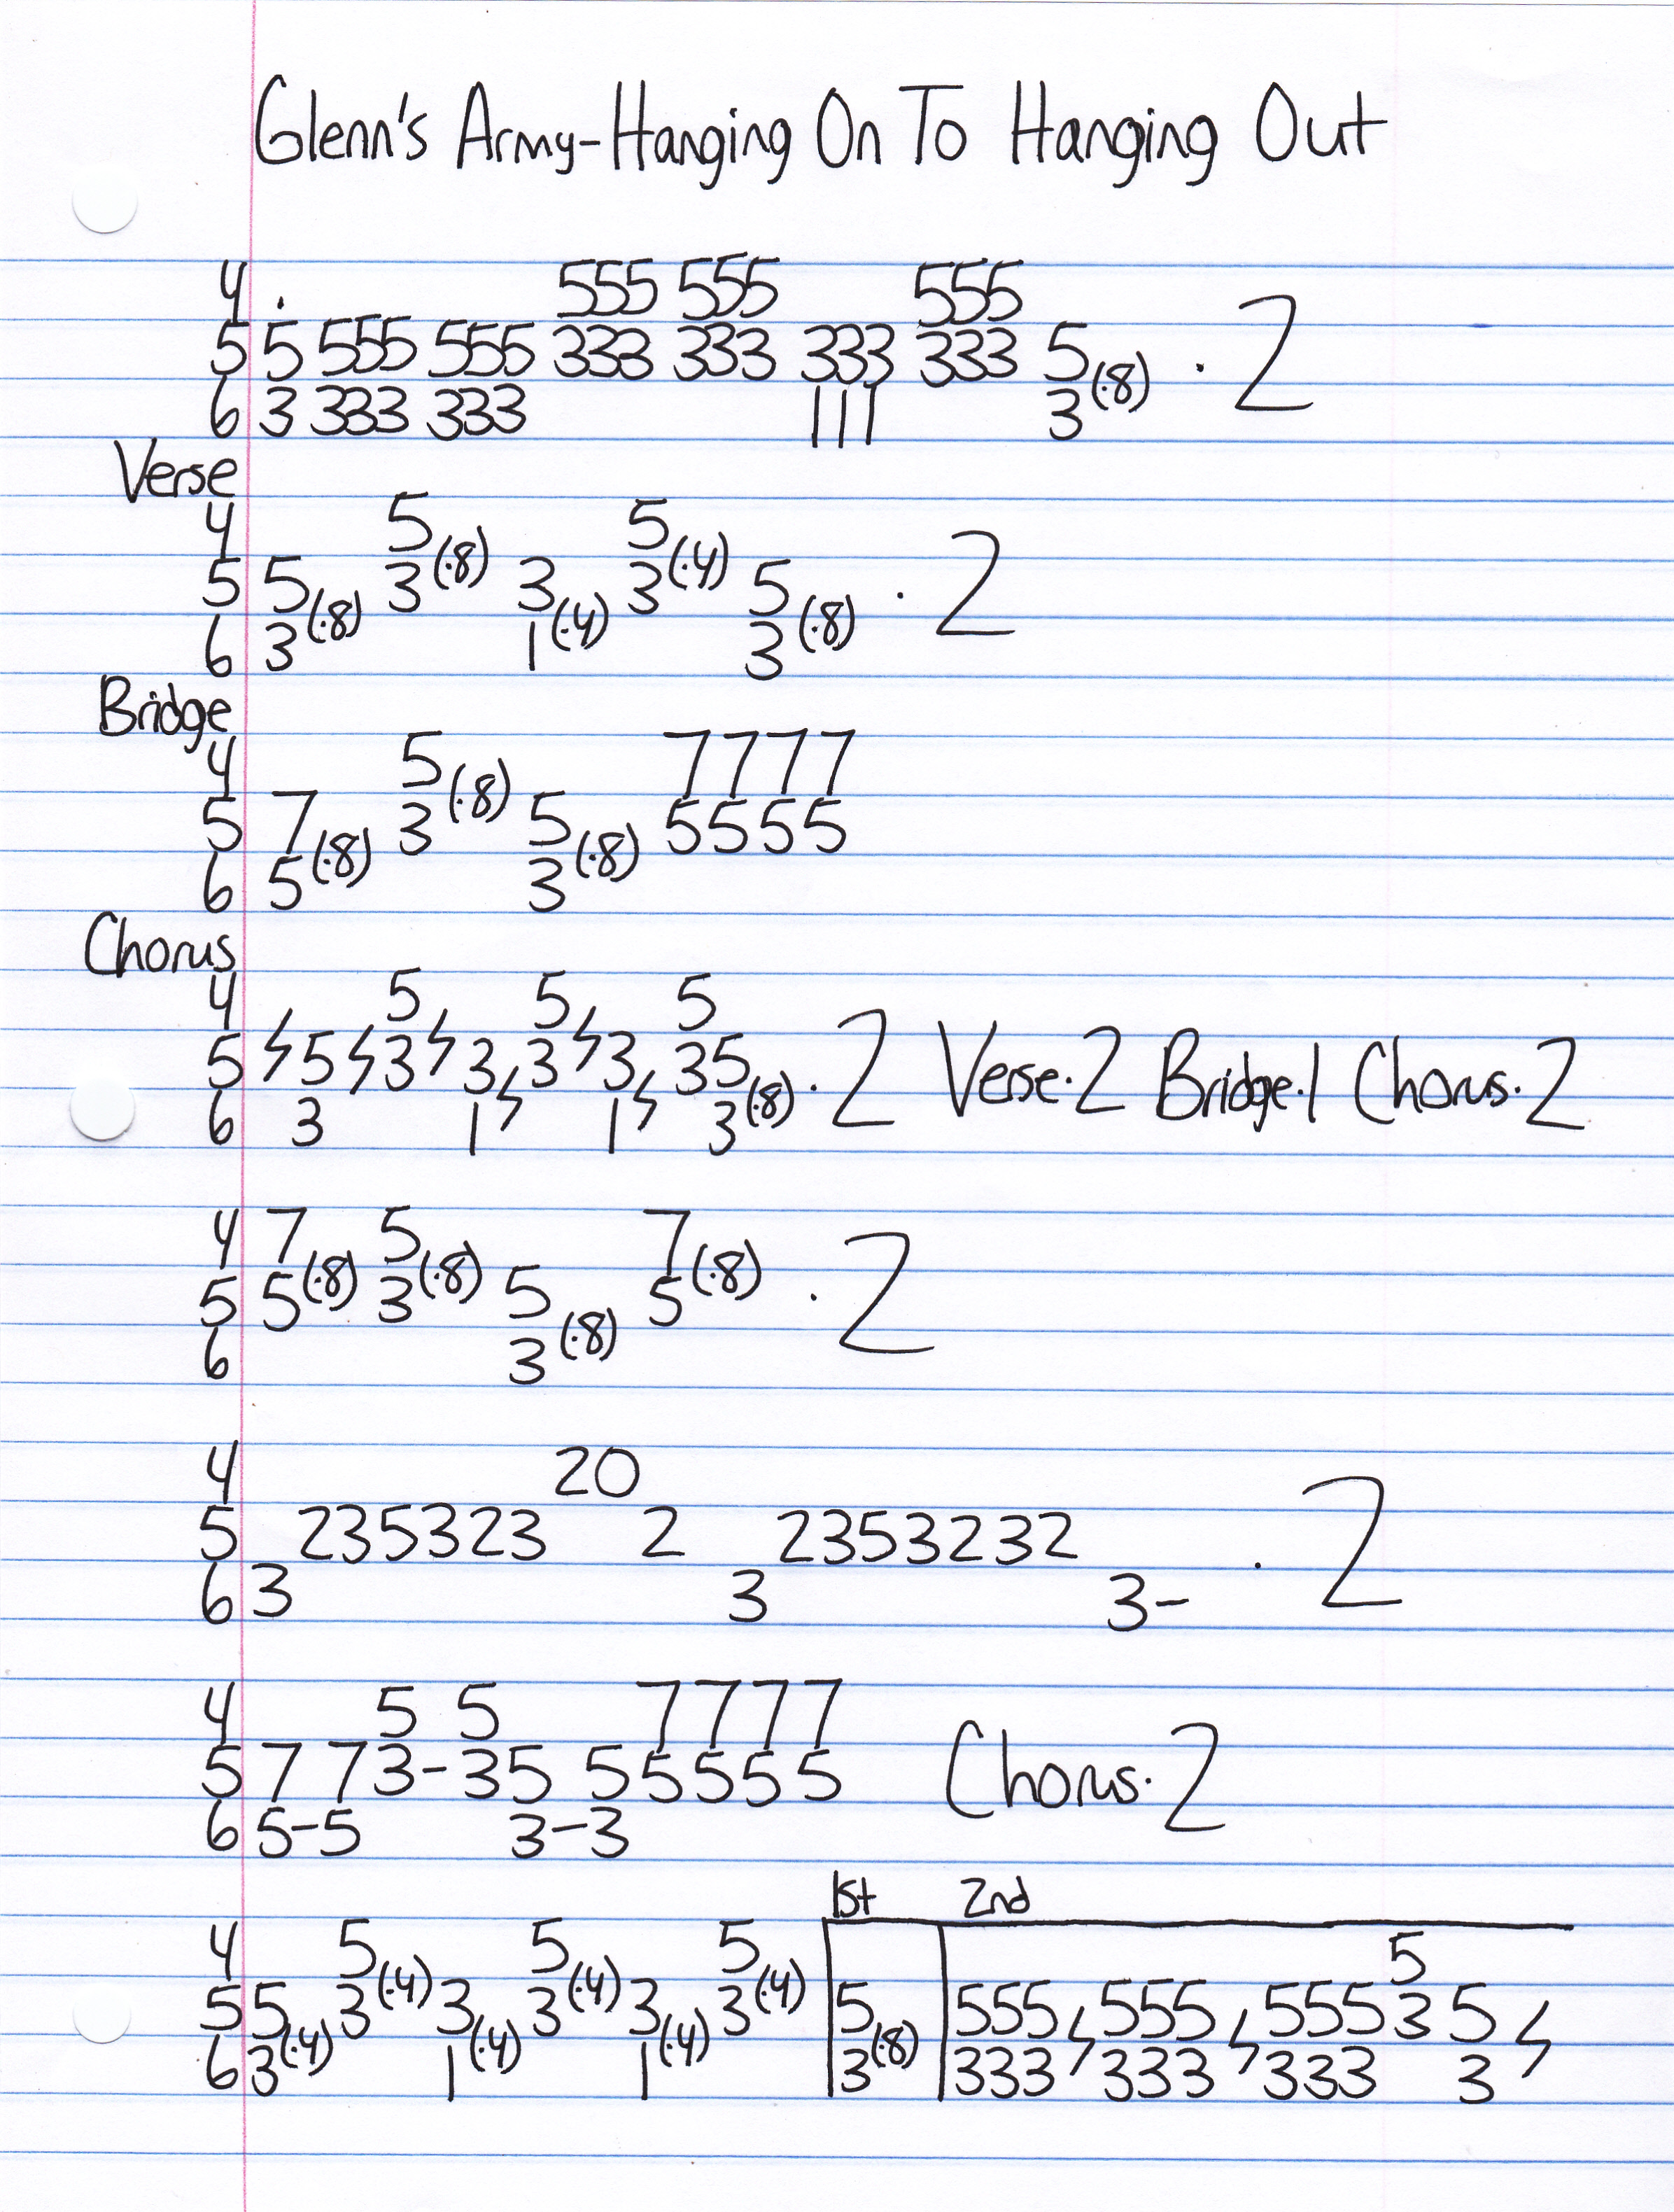 Glenn's Army-Hanging On To Hanging Out
4 . 555 555 555
5 5 555 555 333 333 333 333 5(·8) · 2
6 3 333 333 111 3
Verse
4 5(·8) 5(·4)
5 5(·8) 3 3(·4) 3 5(·8) · 2
6 3 1 3
Bridge
4 5(·8) 7777
5 7(·8) 3 5(·8) 5555
6 5 3
Chorus
4 5 5 5
5 ϟ5ϟ3ϟ3ϟ3ϟ3ϟ35(·8) · 2 Verse·2 Bridge·1 Chorus·2
6 3 1 1 3
4 7(·8) 5(·8) 7(·8)
5 5 3 5(·8) 5 · 2
6 3
4 20
5 235323 2 2353232 · 2
6 3 3 3-
4 5 5 7777
5 7 73-35 55555 Chorus·2
6 5-5 3-3
1st 2nd
4 5(·4) 5(·4) 5(·4) 5
5 5(·4) 3 3(·4) 3 3(·4) 3 5(·8) 555ϟ555ϟ555 3 5ϟ
6 3 1 1 3 333 333 333 3